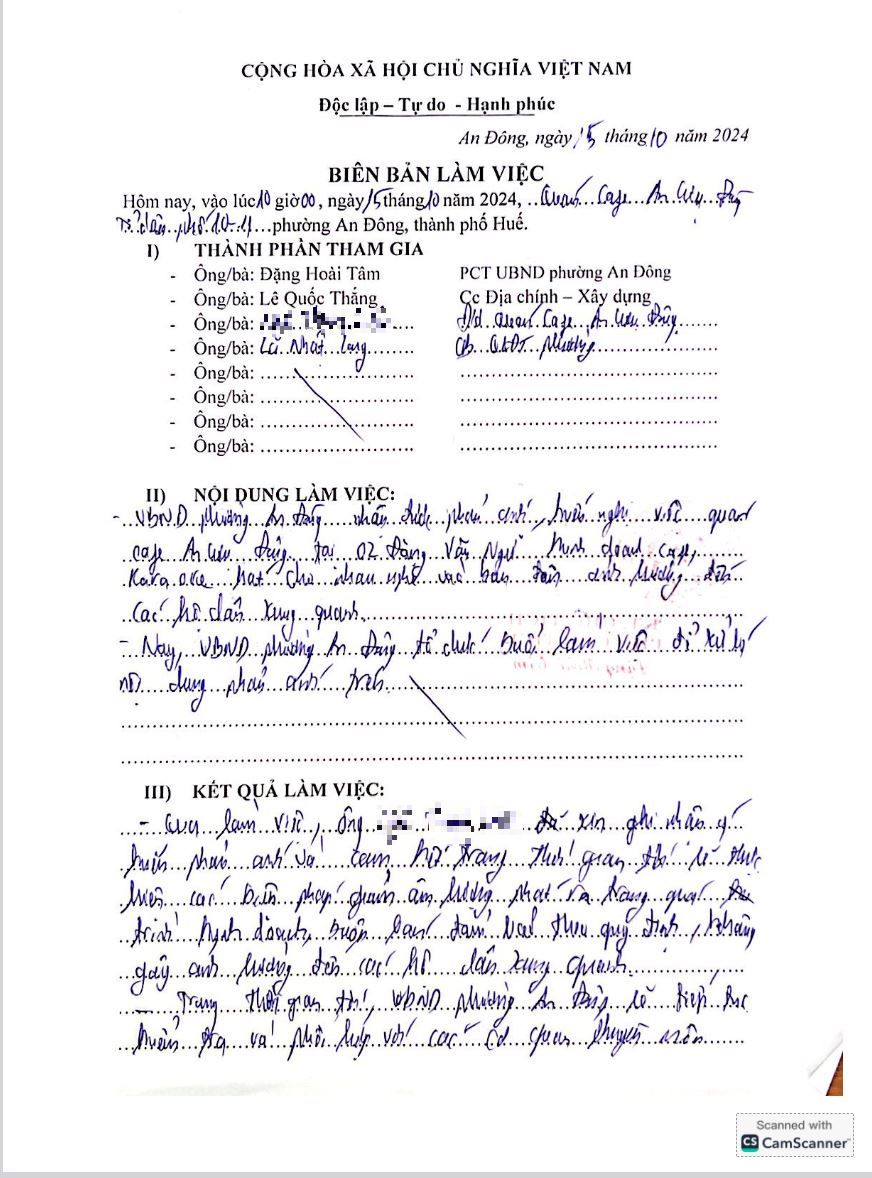 CỘNG HÒA XÃ HỘI CHỦ NGHĨA VIỆT NAM
Độc lập – Tự do - Hạnh phúc
An Đông, ngày 15 tháng 10 năm 2024
BIÊN BẢN LÀM VIỆC
Hôm nay, vào lúc 10 giờ 00, ngày 15 tháng 10 năm 2024, Quán Cafe An Cựu
Tổ dân phố 10-11 phường An Đông, thành phố Huế.
I) THÀNH PHẦN THAM GIA
- Ông/bà: Đặng Hoài Tâm PCT UBND phường An Đông
- Ông/bà: Lê Quốc Thắng Cc Địa chính – Xây dựng
- Ông/bà: Đ/d Quán Cafe An Cựu
- Ông/bà: Nhật CB QLĐT phường
- Ông/bà:
- Ông/bà:
- Ông/bà:
- Ông/bà:
II) NỘI DUNG LÀM VIỆC:
- UBND phường An Đông nhận được phản ánh, kiến nghị việc quán
cafe An Cựu tại 02 Đặng Văn Ngữ kinh doanh cafe,
Karaoke hát cho nhau nghe vào ban đêm ảnh hưởng đến
các hộ dân xung quanh.
- Nay, UBND phường An Đông tổ chức buổi làm việc để xử lý
nội dung phản ánh trên
III) KẾT QUẢ LÀM VIỆC:
- Qua làm việc, ông đã xin ghi nhận ý
kiến phản ánh và cam kết trong thời gian tới sẽ thực
hiện các biện pháp giảm âm lượng phát ra trong quá
trình kinh doanh, buôn bán đảm bảo theo quy định, không
gây ảnh hưởng đến các hộ dân xung quanh.
- Trong thời gian tới, UBND phường An Đông sẽ tiếp tục
kiểm tra và phối hợp với các cơ quan chuyên môn
Scanned with
CS CamScanner